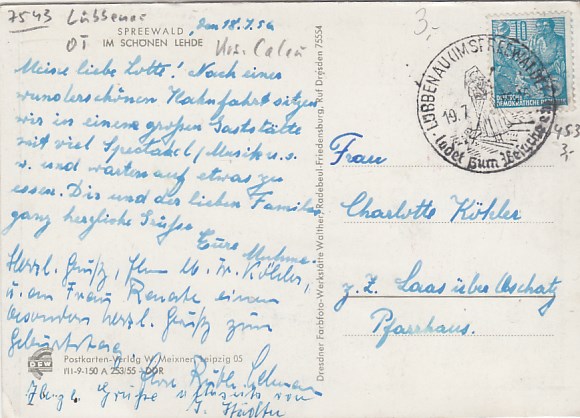 7543 Lübbenau
OT
3,-
SPREEWALD
IM SCHÖNEN LEHDE
den 18.7.56
Meine liebe Lotte! Nach einer
wunderschönen Kahnfahrt sitzen
wir in einem großen Gaststätte
mit viel Spectakel / Musik u.s.
w. und warten auf etwas zu
essen. Dir und der lieben Familie
ganz herzliche Grüße
Eure Muhme.
Herzl. Grüße, Ihnen u. Köhler,
u. an Frau Renate einen
besonders herzl. Gruß zum
Geburtstag
Ihre
Herzl. Grüße
Postkarten-Verlag W. Meixner, Leipzig 05
III-9-150 A 253/55 - DDR
Dresdner Farbfoto-Werkstätte Walther, Radebeul-Friedensburg, Ruf Dresden 75554
10
DEUTSCHE
DEMOKRATISCHE
LÜBBENAU (IM SPREEWALD)
19.7
ladet zum
453
3,-
Frau
Charlotte Köhler
z. Z. Laas über Oschatz
Pfarrhaus.